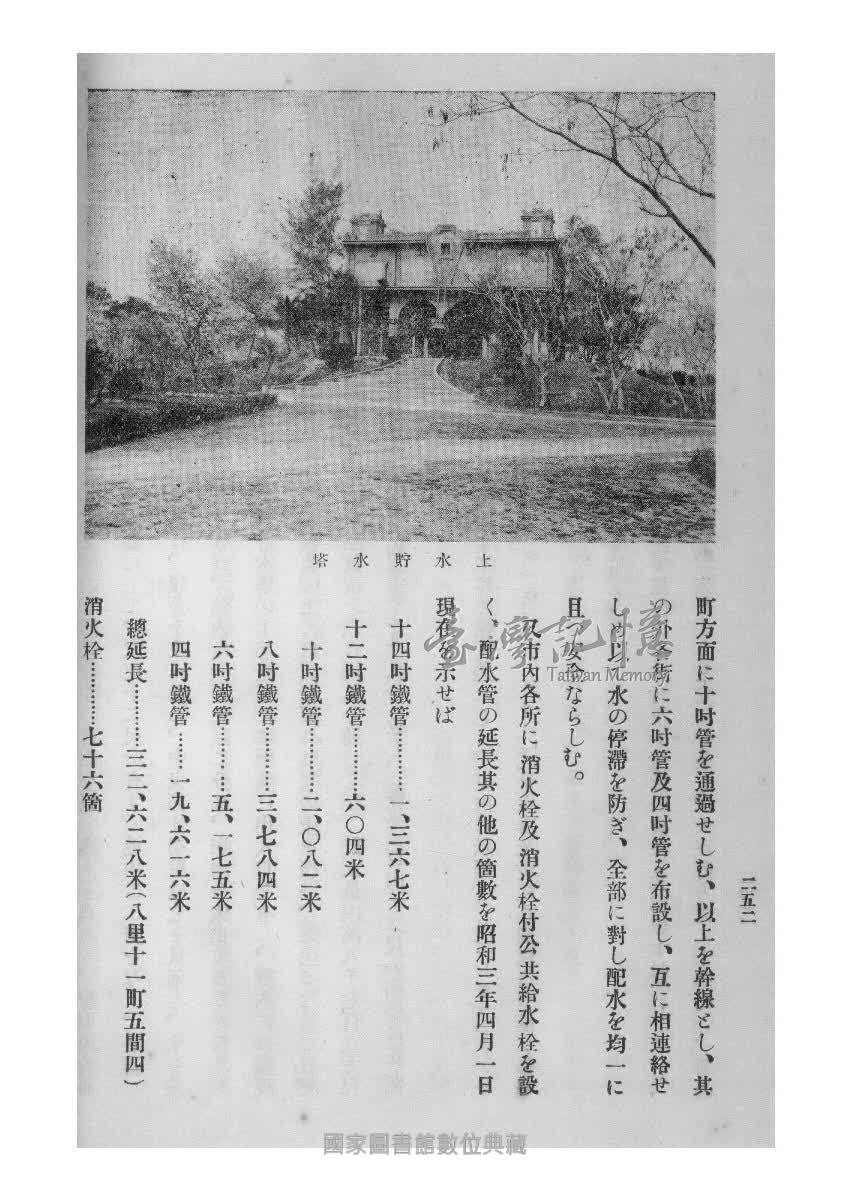 二五二
上水貯水塔
町方面に十吋管を通過せしむ、以上を幹線とし、其
の外各街に六吋管及四吋管を布設し、互に相連絡せ
しめ以て水の停滯を防ぎ、全部に對し配水を均一に
且つ安全ならしむ。
又市内各所に消火栓及消火栓付公共給水栓を設
く、配水管の延長其の他の箇數を昭和三年四月一日
現在を示せば
十四吋鐵管…………一、三六七米
十二吋鐵管…………六〇四米
十吋鐵管…………二、〇八二米
八吋鐵管…………三、七八四米
六吋鐵管…………五、一七五米
四吋鐵管………一九、六一六米
總延長…………三二、六二八米(八里十一町五間四)
消火栓…………七十六箇
臺灣記憶
Taiwan Memory
國家圖書館數位典藏